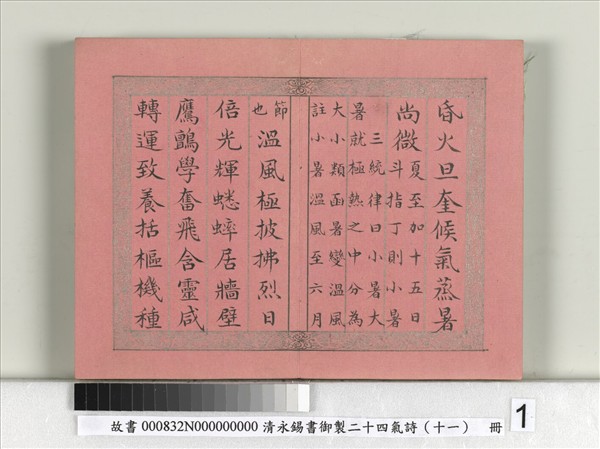 昏火旦奎候氣蒸暑
尚微斗指丁則小暑
夏至加十五日
三統律曰小暑大
暑就極熱之中分為
大小類函暑變溫風
註小暑溫風至六月
節
也溫風極披拂烈日
倍光輝蟋蟀居牆壁
鷹鸇學奮飛含靈咸
轉運致養括樞機種
故書 000832N000000000 清永錫書御製二十四氣詩（十一） 冊
1